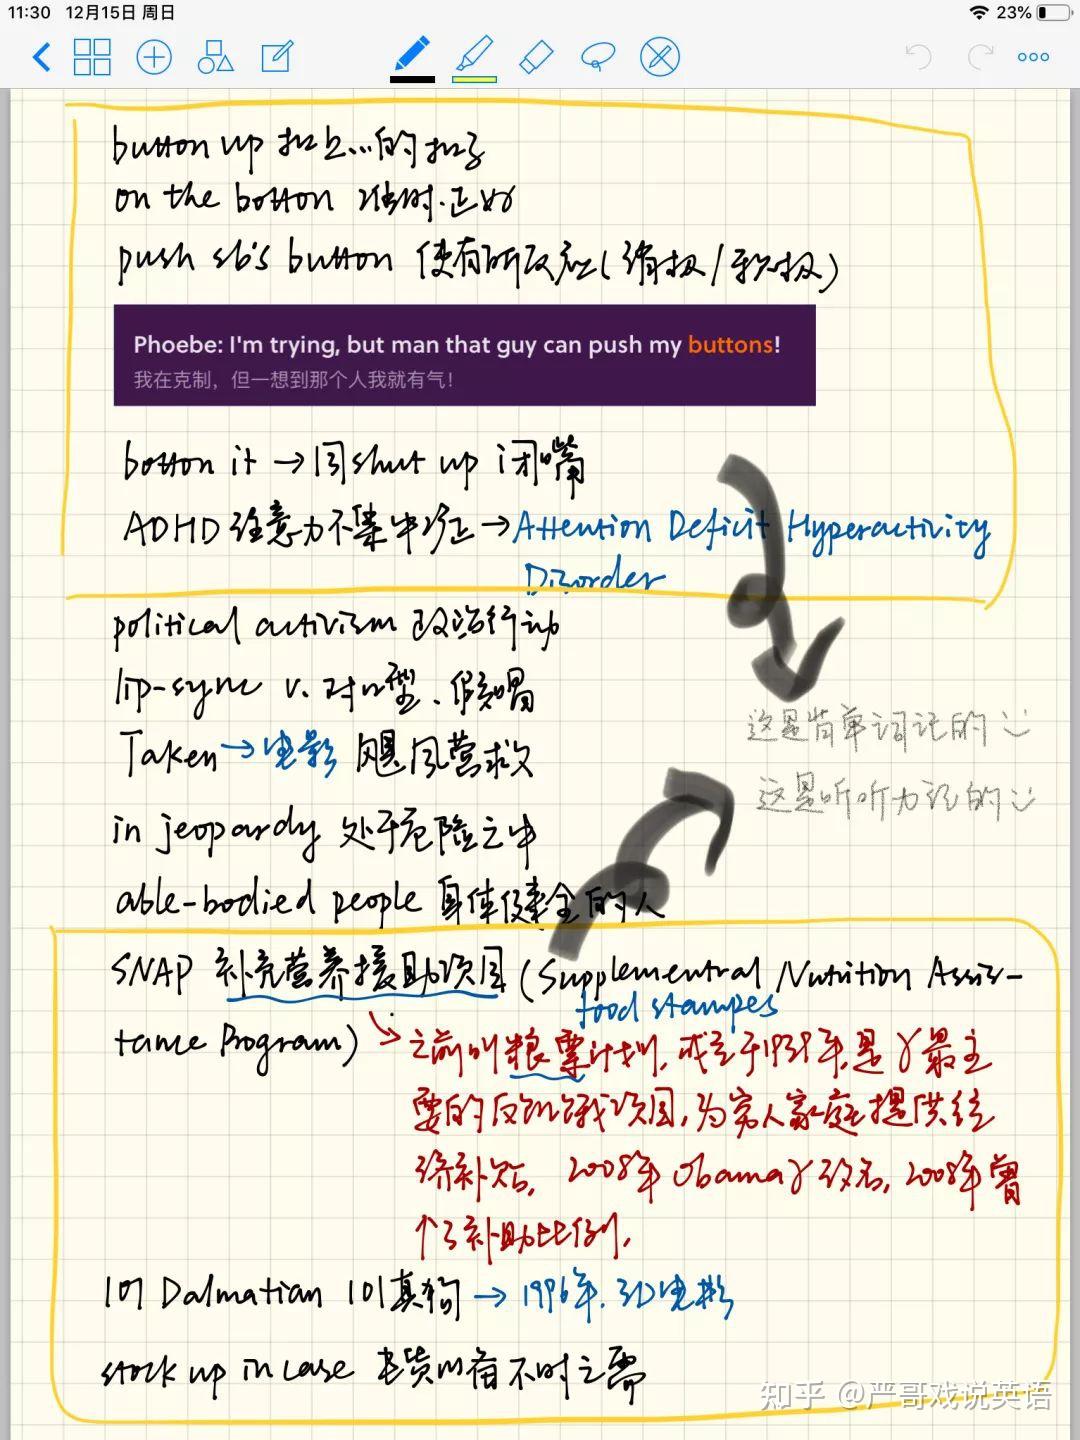 11:30 12月15日 周日
23%
button up 扣上…的扣子
on the botton 准时.正好
push sb's button 使有所反应(消极/积极)
Phoebe: I'm trying, but man that guy can push my buttons!
我在克制，但一想到那个人我就有气！
botton it → 同 shut up 闭嘴
ADHD 注意力不集中症 → Attention Deficit Hyperactivity
Disorder
political activism 政治行动
lip-sync v. 对口型、假唱
这是背单词记的
Taken → 电影 飓风营救
这是听听力记的
in jeopardy 处于危险之中
able-bodied people 身体健全的人
SNAP 补充营养援助项目 (Supplemental Nutrition Assis-
food stampes
tance Program)
之前叫粮票计划, 成立于1939年,是最主
要的反饥饿项目,为穷人家庭提供经
济补贴, 2008年 Obama 改名, 2008年曾
补助比例,
101 Dalmatian 101真狗 → 1996年.电影
stock up in case 囤货以备不时之需
知乎 @严哥戏说英语